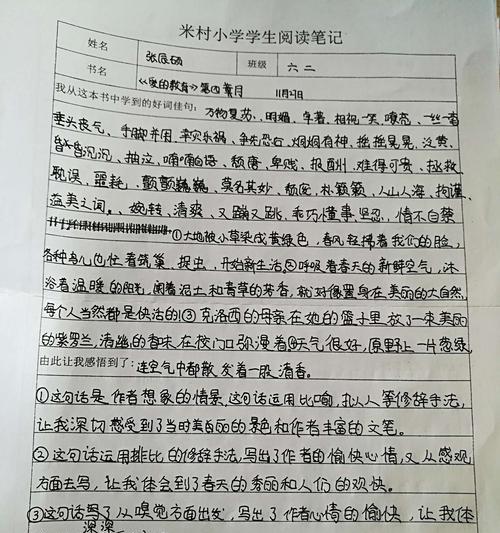 米村小学学生阅读笔记
姓名 张辰硕 班级 六二
书名 《爱的教育》第四章月 11月27日
我从这本书中学到的好词佳句：万物复苏、明媚、牵着、相视一笑、嘹亮、一丝一毫
垂头丧气、手脚并用、幸灾乐祸、争先恐后、炯炯有神、摇摇晃晃、泛黄、
昏昏沉沉、抽泣、喃喃自语、颓唐、卑贱、报酬、难得可贵、拯救
耽误、噩耗、颤颤巍巍、莫名其妙、杨、朴、人山人海、拘谨、
溢美之词、婉转、清爽、又蹦又跳、乖巧懂事、坚忍、情不自禁
①大地被小草染成黄绿色，春风轻拂着我们的脸，
各种鸟儿也忙着筑巢、捉虫，开始新生活②呼吸着春天的新鲜空气，沐
浴着温暖的阳光，闻着泥土和青草的芳香，就好像置身在美丽的大自然，
每个人当然都是快活的③克洛西的母亲在她的篮子里放了一束美丽
的紫罗兰，清幽的香味在校门口弥漫着④天气很好，原野上一片葱绿，
由此让我感悟到了：连空气中都散发着一股清香。
①这句话是作者想象的情景，这句话运用比喻，拟人等修辞手法，
让我深切感受到了当时美丽的景色和作者丰富的文笔。
②这句话运用排比的修辞手法，写出了作者的愉快心情，又从感观
方面去写，让我体会到了春天的秀丽和人们的欢快。
③这句话写了从嗅觉方面出发，写出了作者心情的愉快，让我体
深深